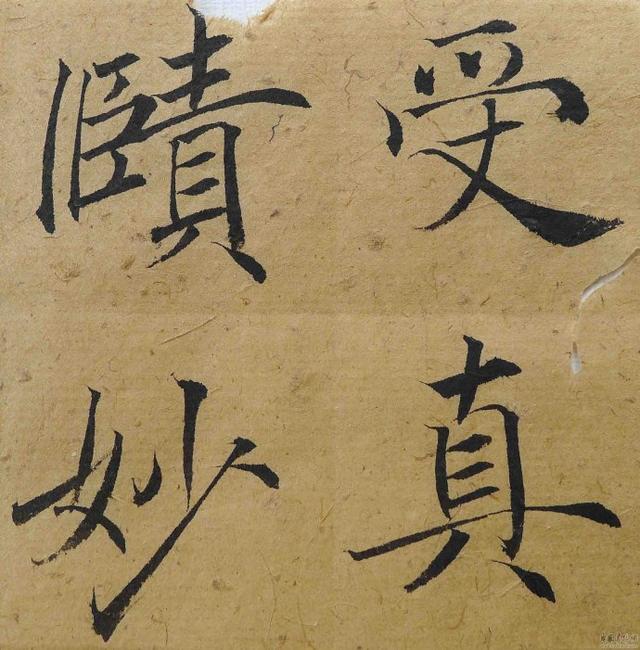 受真
賾妙